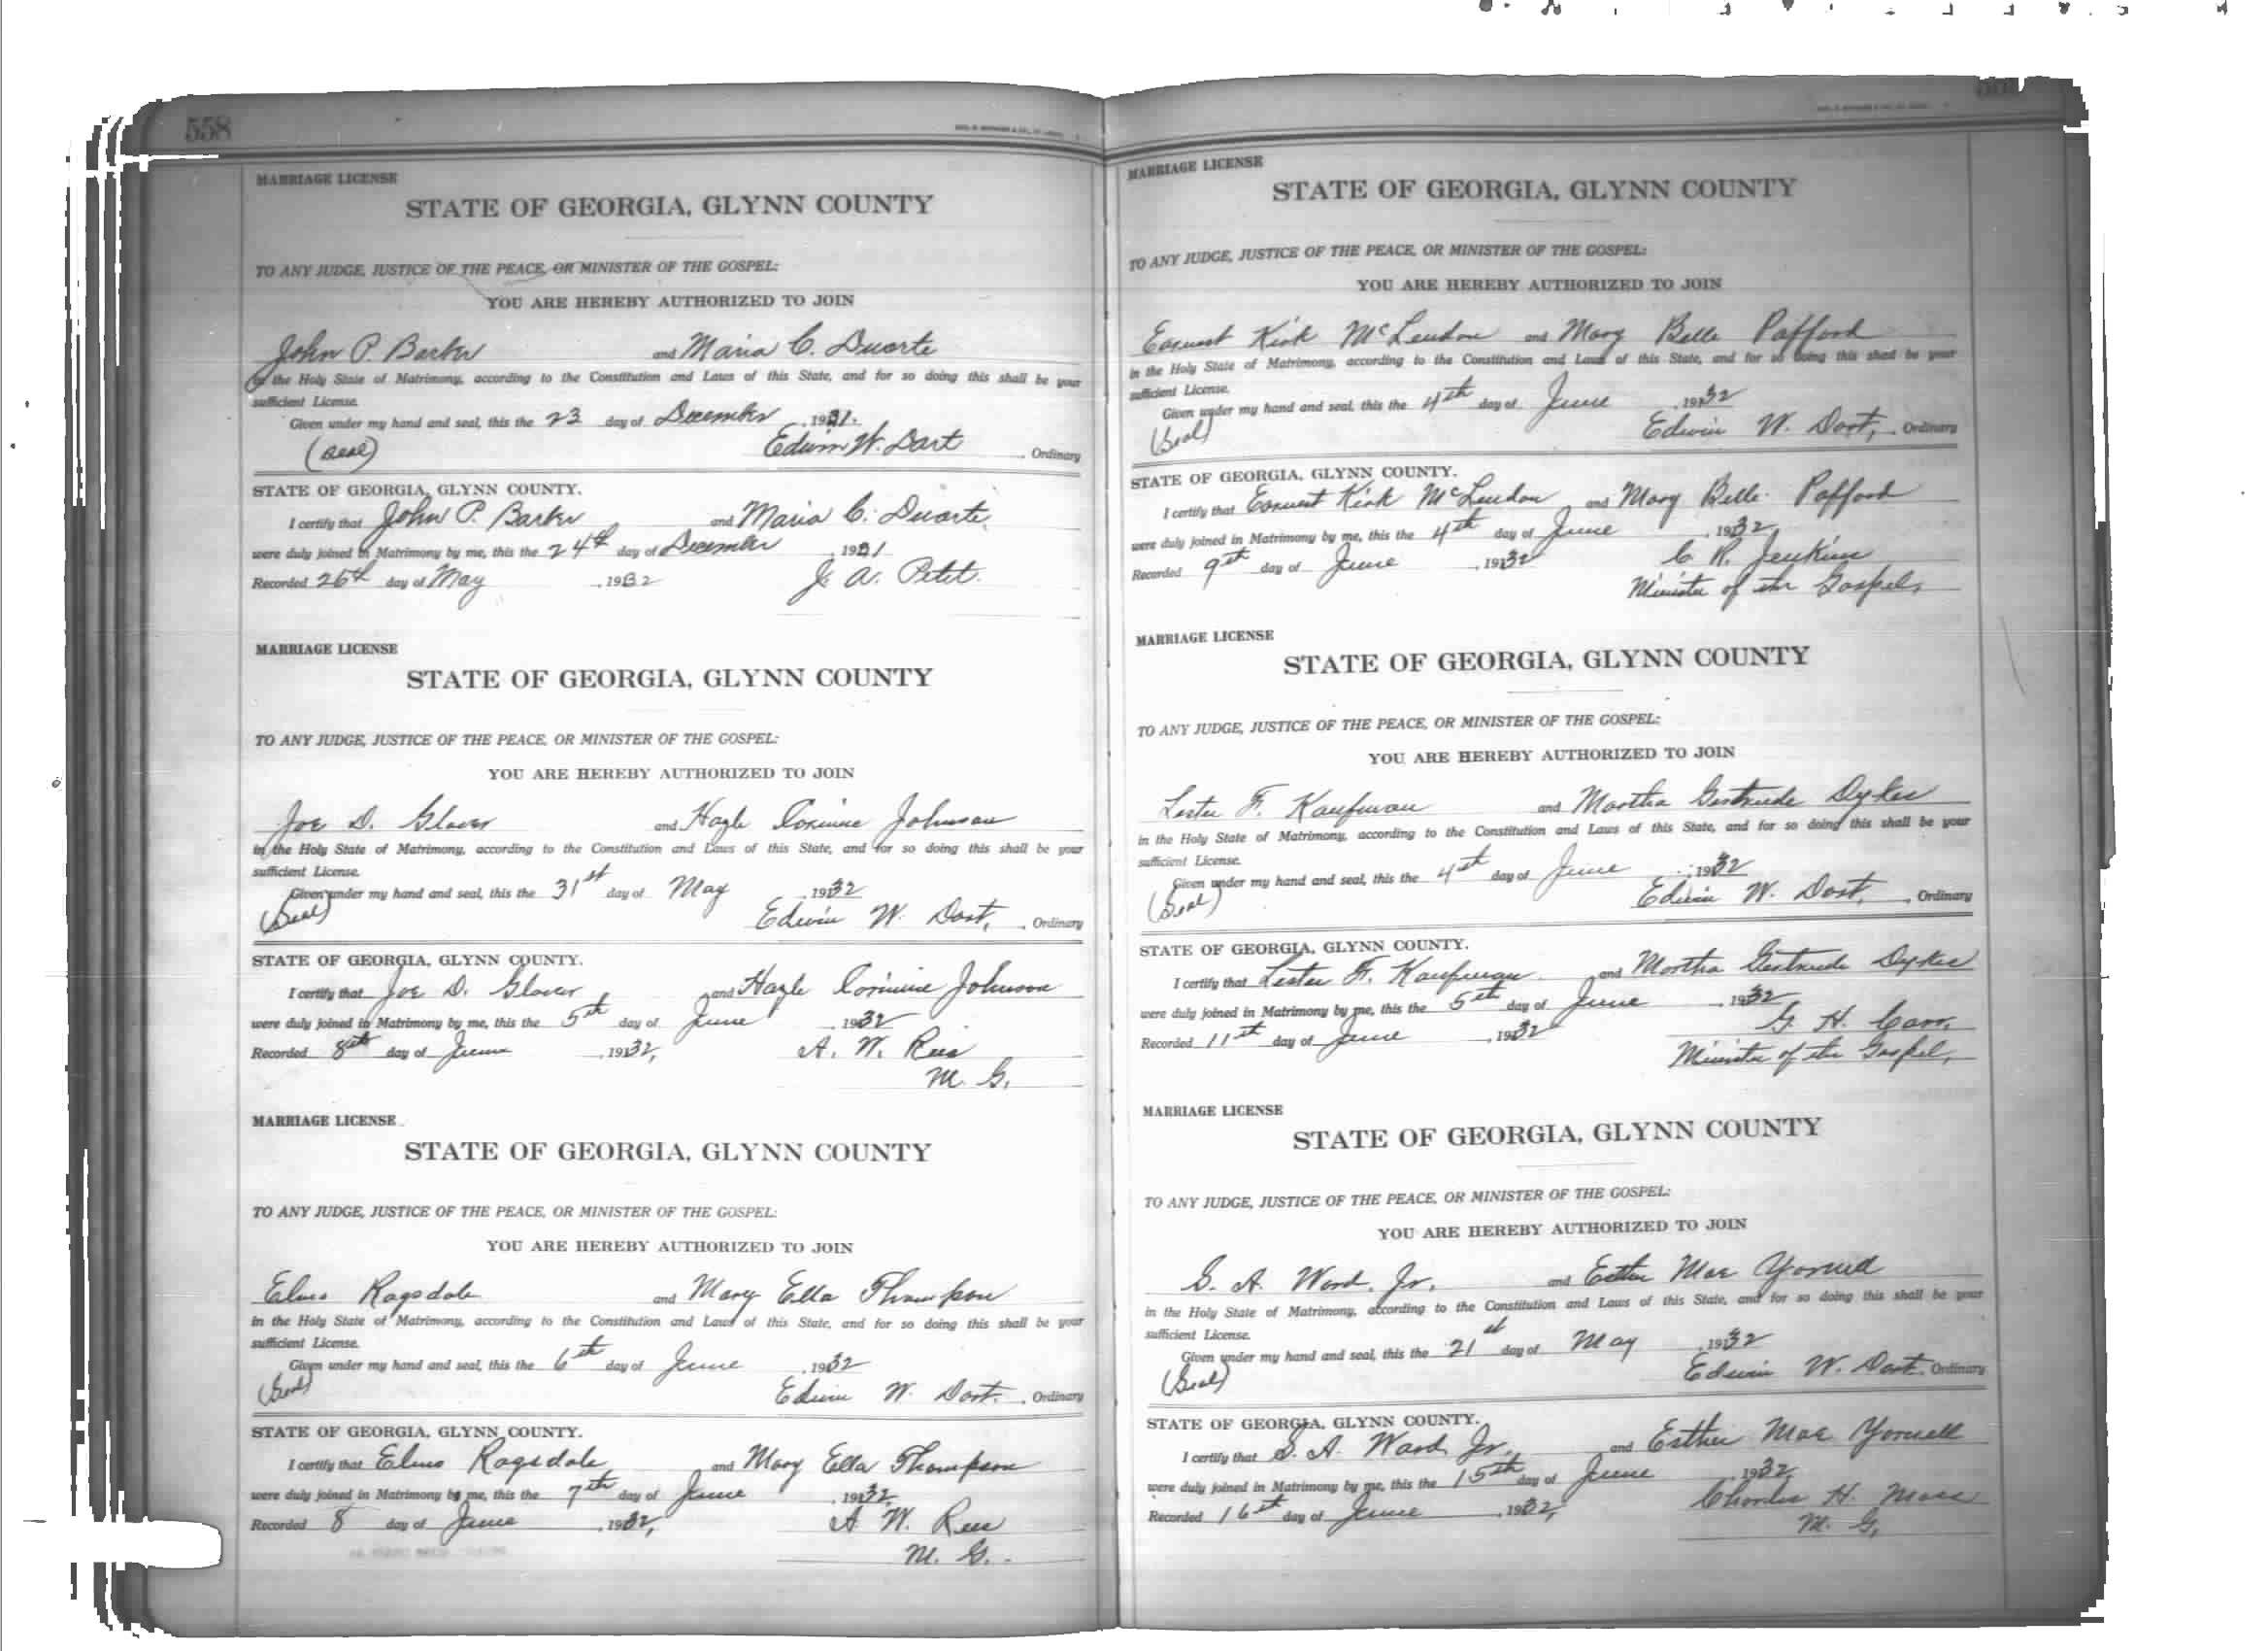 558
MARRIAGE LICENSE
STATE OF GEORGIA, GLYNN COUNTY
TO ANY JUDGE, JUSTICE OF THE PEACE, OR MINISTER OF THE GOSPEL:
YOU ARE HEREBY AUTHORIZED TO JOIN
John P. Barker and Maria C. Duarte
in the Holy State of Matrimony, according to the Constitution and Laws of this State, and for so doing this shall be your
sufficient License.
Given under my hand and seal, this the 23 day of December, 1931.
(Seal) Edwin W. Dart, Ordinary
STATE OF GEORGIA, GLYNN COUNTY.
I certify that John P. Barker and Maria C. Duarte
were duly joined in Matrimony by me, this the 24th day of December, 1931
Recorded 26th day of May, 1932 J. A. Petit.
MARRIAGE LICENSE
STATE OF GEORGIA, GLYNN COUNTY
TO ANY JUDGE, JUSTICE OF THE PEACE, OR MINISTER OF THE GOSPEL:
YOU ARE HEREBY AUTHORIZED TO JOIN
Joe D. Glover and Hazle Corinne Johnson
in the Holy State of Matrimony, according to the Constitution and Laws of this State, and for so doing this shall be your
sufficient License.
Given under my hand and seal, this the 31st day of May, 1932
(Seal) Edwin W. Dart, Ordinary
STATE OF GEORGIA, GLYNN COUNTY.
I certify that Joe D. Glover and Hazle Corinne Johnson
were duly joined in Matrimony by me, this the 5th day of June, 1932
Recorded 8th day of June, 1932, A. W. Rees
M. G.
MARRIAGE LICENSE
STATE OF GEORGIA, GLYNN COUNTY
TO ANY JUDGE, JUSTICE OF THE PEACE, OR MINISTER OF THE GOSPEL:
YOU ARE HEREBY AUTHORIZED TO JOIN
Elmo Ragsdale and Mary Ella Thompson
in the Holy State of Matrimony, according to the Constitution and Laws of this State, and for so doing this shall be your
sufficient License.
Given under my hand and seal, this the 6th day of June, 1932
(Seal) Edwin W. Dart, Ordinary
STATE OF GEORGIA, GLYNN COUNTY.
I certify that Elmo Ragsdale and Mary Ella Thompson
were duly joined in Matrimony by me, this the 7th day of June, 1932
Recorded 8 day of June, 1932, A W. Rees
M. G.
MARRIAGE LICENSE
STATE OF GEORGIA, GLYNN COUNTY
TO ANY JUDGE, JUSTICE OF THE PEACE, OR MINISTER OF THE GOSPEL:
YOU ARE HEREBY AUTHORIZED TO JOIN
Earnest Kirk McLendon and Mary Belle Pafford
in the Holy State of Matrimony, according to the Constitution and Laws of this State, and for so doing this shall be your
sufficient License.
Given under my hand and seal, this the 4th day of June, 1932
(Seal) Edwin W. Dart, Ordinary
STATE OF GEORGIA, GLYNN COUNTY.
I certify that Earnest Kirk McLendon and Mary Belle Pafford
were duly joined in Matrimony by me, this the 4th day of June, 1932
Recorded 9th day of June, 1932 C R. Jenkins
Minister of the Gospel,
MARRIAGE LICENSE
STATE OF GEORGIA, GLYNN COUNTY
TO ANY JUDGE, JUSTICE OF THE PEACE, OR MINISTER OF THE GOSPEL:
YOU ARE HEREBY AUTHORIZED TO JOIN
Lester F. Kaufman and Martha Gertrude Dykes
in the Holy State of Matrimony, according to the Constitution and Laws of this State, and for so doing this shall be your
sufficient License.
Given under my hand and seal, this the 4th day of June, 1932
(Seal) Edwin W. Dart, Ordinary
STATE OF GEORGIA, GLYNN COUNTY.
I certify that Lester F. Kaufman and Martha Gertrude Dykes
were duly joined in Matrimony by me, this the 5th day of June, 1932
Recorded 11th day of June, 1932 G. H. Carr,
Minister of the Gospel,
MARRIAGE LICENSE
STATE OF GEORGIA, GLYNN COUNTY
TO ANY JUDGE, JUSTICE OF THE PEACE, OR MINISTER OF THE GOSPEL:
YOU ARE HEREBY AUTHORIZED TO JOIN
S. A. Ward, Jr. and Esther Mae
in the Holy State of Matrimony, according to the Constitution and Laws of this State, and for so doing this shall be your
sufficient License.
Given under my hand and seal, this the 21st day of May, 1932
(Seal) Edwin W. Dart, Ordinary
STATE OF GEORGIA, GLYNN COUNTY.
I certify that S. A. Ward Jr. and Esther Mae
were duly joined in Matrimony by me, this the 15th day of June, 1932
Recorded 16th day of June, 1932, Charles H.
M. G.